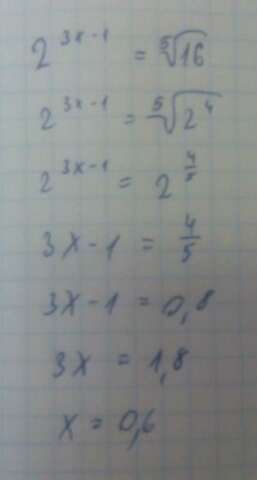 2^{3x-1} = \sqrt[5]{16}
2^{3x-1} = \sqrt[5]{2^4}
2^{3x-1} = 2^{\frac{4}{5}}
3x-1 = \frac{4}{5}
3x-1 = 0,8
3x = 1,8
x = 0,6